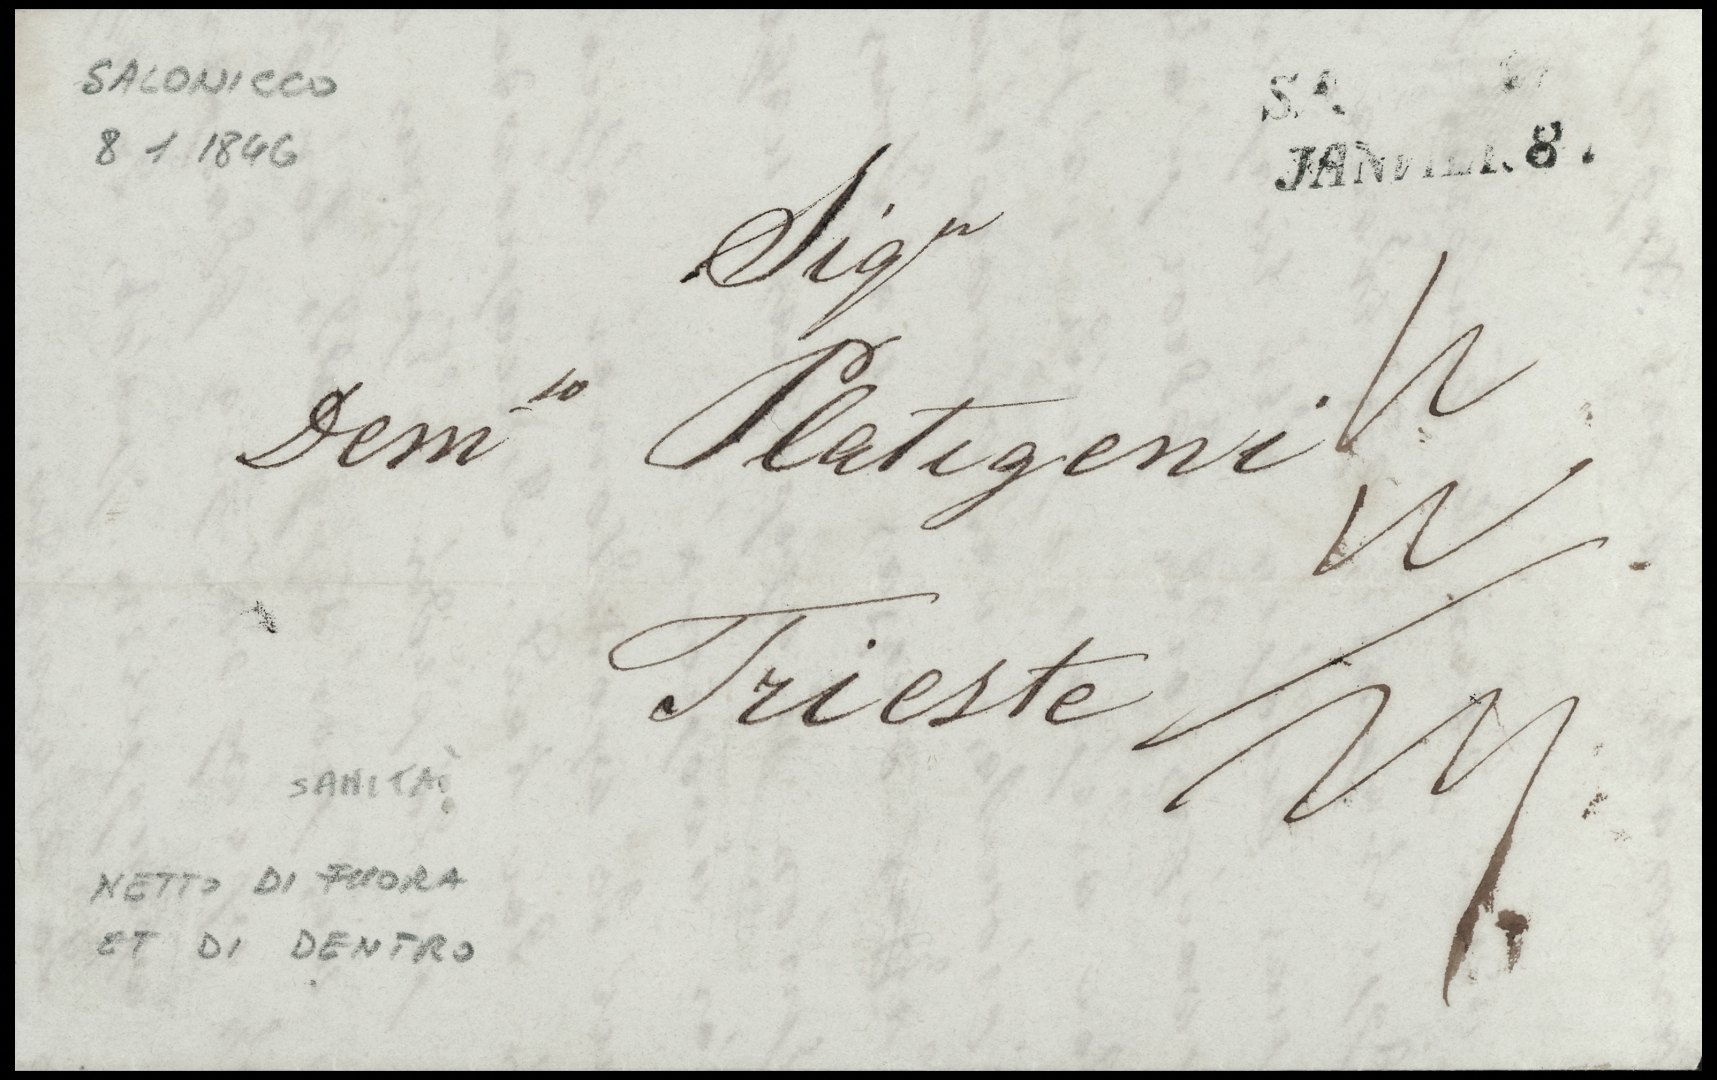 SALONICCO
8 1 1846
JANVIER 8.
Sigr
Demto Platigeni
Trieste
SANITÀ
NETTO DI FUORA
ET DI DENTRO